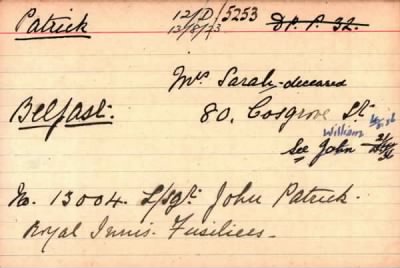 Patrick 12/D/5253 D.P. P. 32.
12/8/23
Mrs Sarah - deceased
Belfast: 80, Cosgrove St
William
See John
No. 13004. L/Sgt. John Patrick.
Royal Innis. Fusiliers.